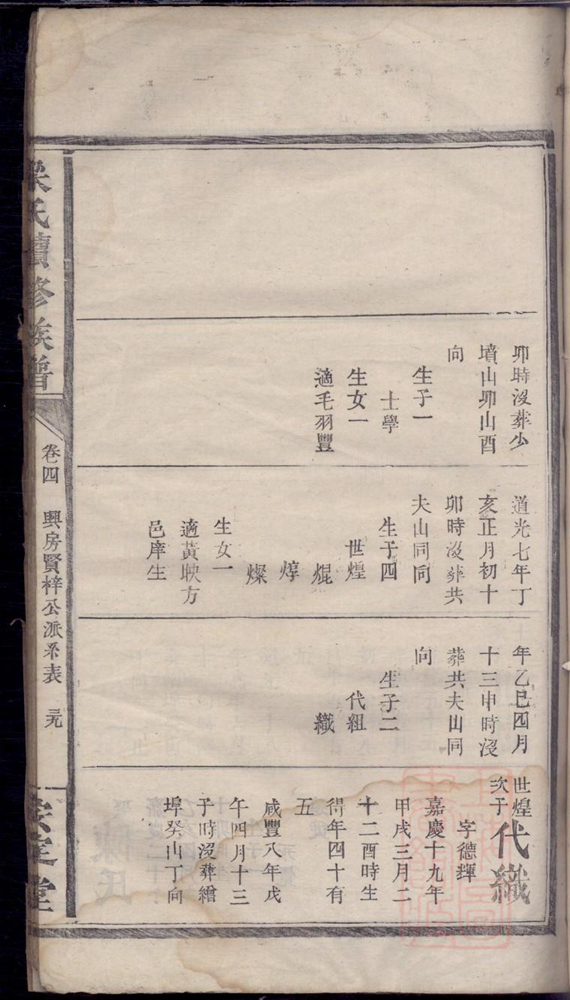 卯時沒葬少
墳山卯山酉
向
生子一
士學
生女一
適毛羽豐
道光七年丁
亥正月初十
卯時沒葬共
夫山同向
生子四
世煌
焜
焞
燦
生女一
適黃映方
邑庠生
年乙巳四月
十三申時沒
葬共夫山同
向
生子二
代組
織
世煌
次子
代織
字德輝
嘉慶十九年
甲戌三月二
十二酉時生
得年四十有
五
咸豐八年戊
午四月十三
子時沒葬繒
埠癸山丁向
氏續修族譜
卷四 興房賢梓公派系表
堂